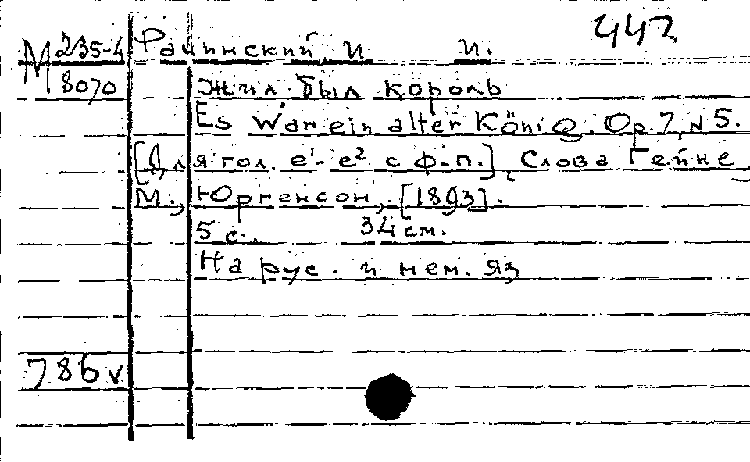 442
М 235-4
8070
Рачинский, И. И.
Жил был король
Es war ein alter König. Op. 7, N 5.
[Для гол. e¹-e² с ф.-п.]. Слова Гейне.
М., Юргенсон, [1893].
5 с. 34 см.
На рус. и нем. яз
786 v